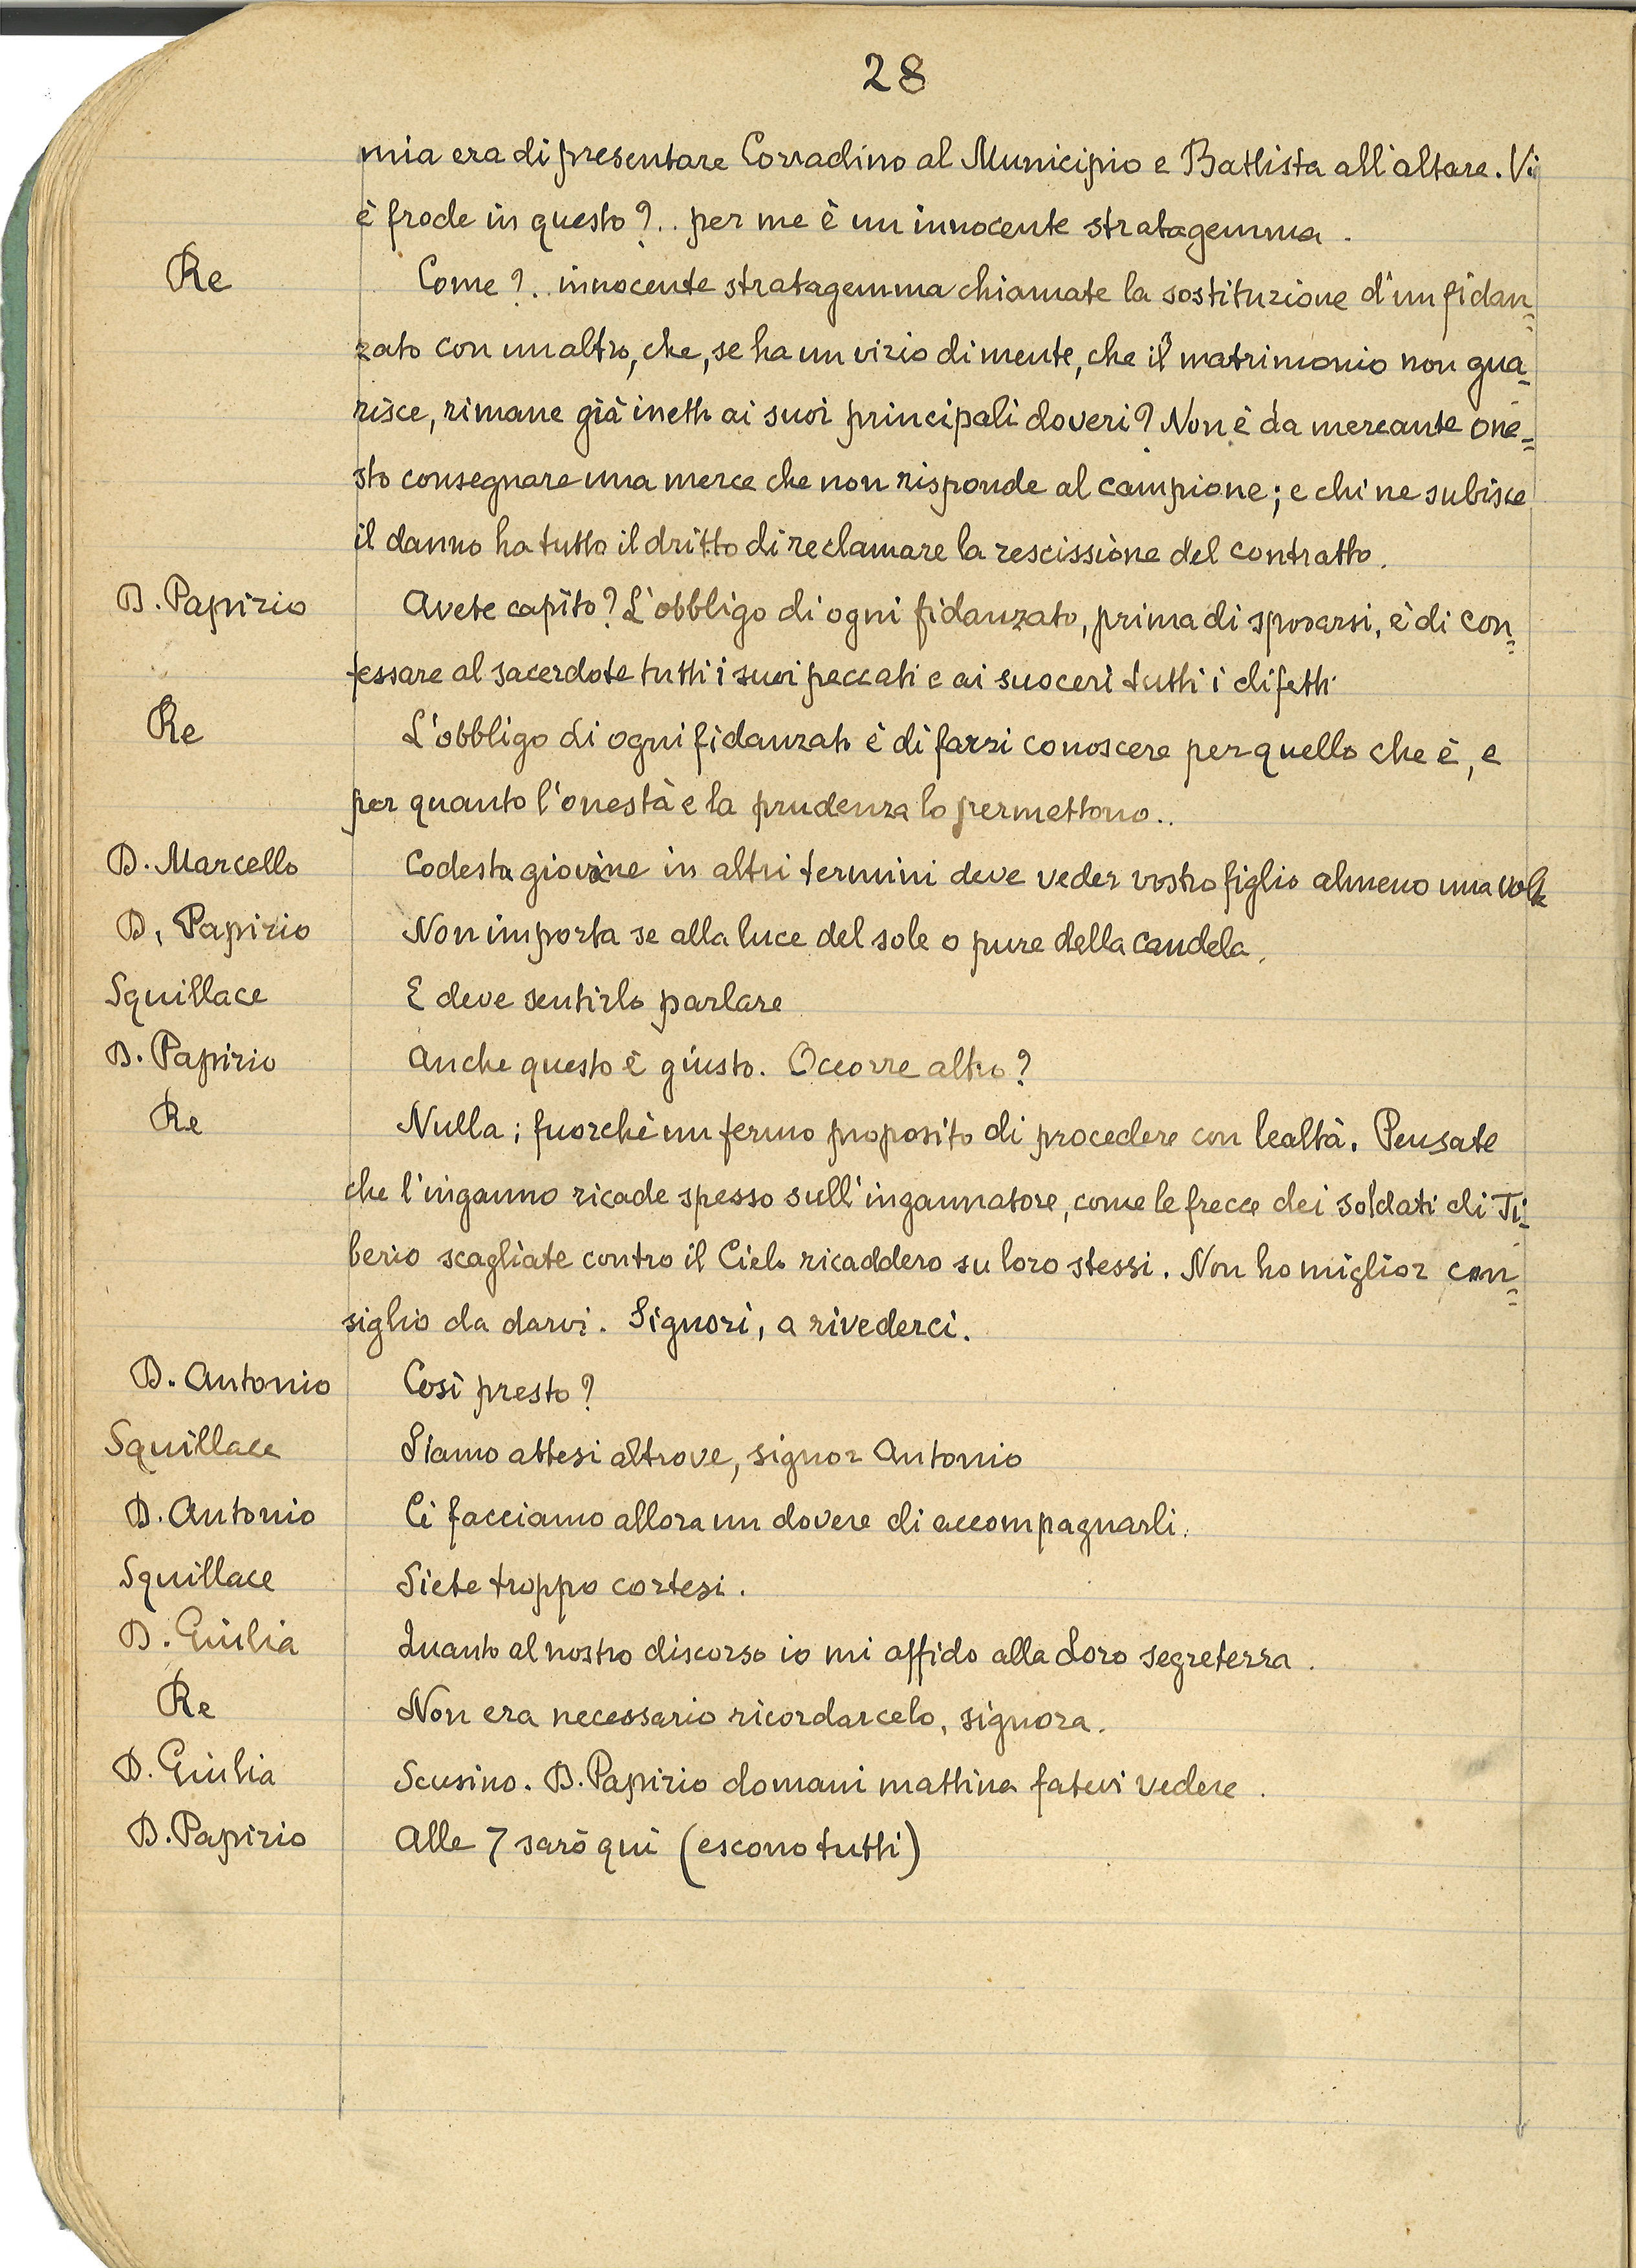 28
mia era di presentare Corradino al Municipio e Battista all'altare. Vi
è frode in questo?.. per me è un innocente stratagemma.
Re Come?.. innocente stratagemma chiamate la sostituzione d'un fidan=
zato con un altro, che, se ha un vizio di mente, che il matrimonio non gua=
risce, rimane già inetto ai suoi principali doveri? Non è da mercante one=
sto consegnare una merce che non risponde al campione; e chi ne subisce
il danno ha tutto il dritto di reclamare la rescissione del contratto.
D. Papirio Avete capito? L'obbligo di ogni fidanzato, prima di sposarsi, è di con=
fessare al sacerdote tutti i suoi peccati e ai suoceri tutti i difetti
Re L'obbligo di ogni fidanzato è di farsi conoscere per quello che è, e
per quanto l'onestà e la prudenza lo permettono..
D. Marcello Codesta giovine in altri termini deve veder vostro figlio almeno una volta
D. Papirio Non importa se alla luce del sole o pure della candela.
Squillace E deve sentirlo parlare
D. Papirio Anche questo è giusto. Occorre altro?
Re Nulla; fuorchè un fermo proposito di procedere con lealtà. Pensate
che l'inganno ricade spesso sull'ingannatore, come le frecce dei soldati di Ti=
berio scagliate contro il Cielo ricaddero su loro stessi. Non ho miglior con=
siglio da darvi. Signori, a rivederci.
D. Antonio Così presto?
Squillace Siamo attesi altrove, signor Antonio
D. Antonio Ci facciamo allora un dovere di accompagnarli.
Squillace Siete troppo cortesi.
D. Giulia Quanto al nostro discorso io mi affido alla Loro segretezza.
Re Non era necessario ricordarcelo, signora.
D. Giulia Scusino. D. Papirio domani mattina fatevi vedere.
D. Papirio Alle 7 sarò qui (escono tutti)